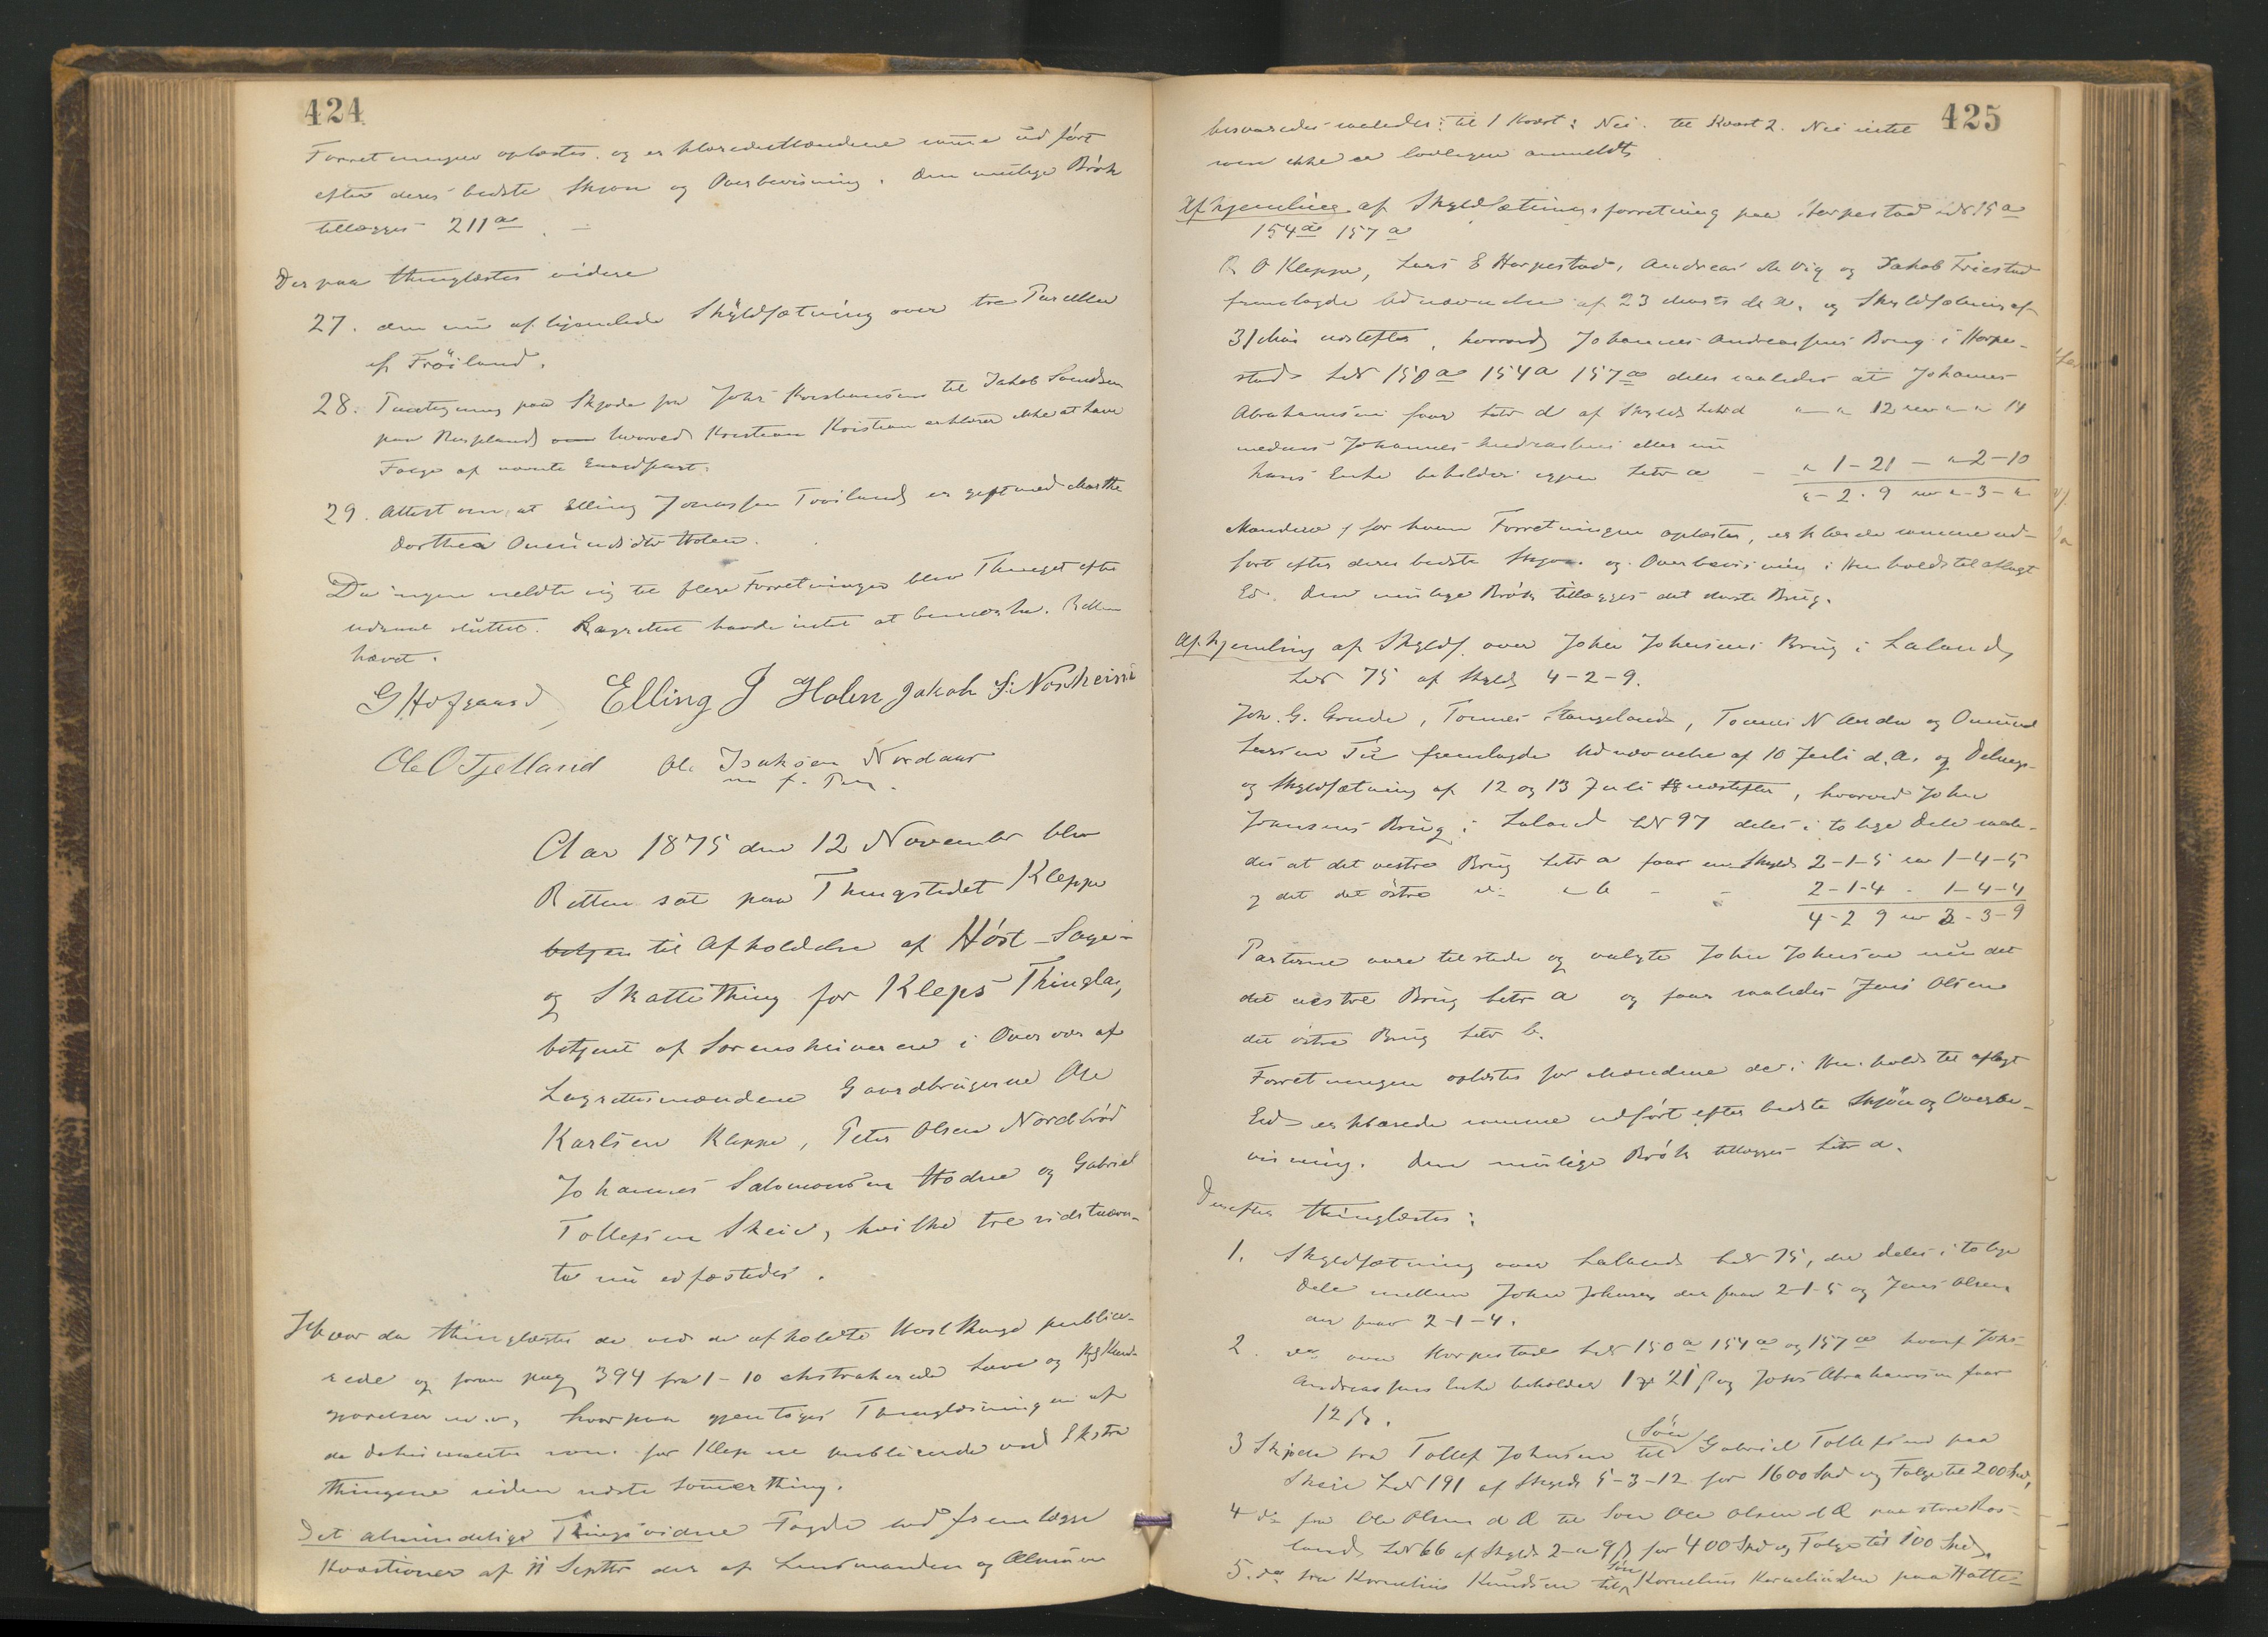 424
Forretningen oplæstes og erklæredes Mændene samme udført
efter deres bedste Skjøn og Overbevisning. Den mulige Brøk
tillægges 211a
Derpaa thinglæstes videre
27. den nu afhjemlede Skyldsætning over tre Pareller
af Frøiland.
28. Paategning paa Skjøde fra Johs til Jakob Svendsen
paa hvorved Kristian erklærer ikke at have
Folge af nævnte
29. Attest om, at Elling Jonassen er gift med Marthe
Dorthea Omundsdtr Holen.
Da ingen meldte sig til flere Forretninger blev Thinget efter
udraab sluttet. Lagrettet havde intet at bemærke. Retten
hævet.
G Hofgaard Elling J Holen Jakob S. Næsheim
Ole O Tjelland Ole Isaksen Nordaas
m. f. Pen.
Aar 1875 den 12 November blev
Retten sat paa Thingstedet Kleppe
betjen til Afholdelse af Høst-Sage-
og Skattething for Kleps Thinglag,
betjent af Sorenskriveren i Overvær af
Lagrettesmændene Gaardbrugerne Ole
Karlsen Kleppe, Peter Olsen Nordbrød
Johannes Salomonsen Hodne og Gabriel
Tollefsen Skeie, hvilke tre sidstnævn-
te nu edfæstedes.
Hvor da thinglæstes de ved de afholdte Høstthinge publice-
rede og foran pag 394 fra 1-10 ekstraherede Love og Kund-
gjørelser m.v., hvorpaa gjentoges Thinglæsningen af
de Dokumenter som for Klep ere publicerede ved Ekstra
thingene siden sidste Sommerthing.
Det almindelige Thingsvidne Fogden lod fremlægge
Kvæstioner af 11 Septbr der af Lensmanden og Almuen
425
besvaredes saaledes: til 1 Kvæst: Nei. til Kvæst 2. Nei intet
som ikke er lovligen anmeldt,
Afhjemling af Skyldsætningsforretning paa Horpestad LN 150a
154a 157a
R O Kleppe, Lars E Horpestad, Andreas M Vig og Jakob Friestad
fremlagde Udnævnelse af 23 Marts d.A. og Skyldsætning af
31 Mai næstefter, hvorved Johannes Andreassens Brug i Horpe-
stad LN 150a 154a 157a deles saaledes at Johannes
Abrahamsen faar Litr d af Skyld 12 14
medens Johannes Andreassens eller nu
hans Enke beholder igjen Litr a - " 1-21 - " 2-10
" - 2. 9 " - 3 - "
Mændene, for hvem Forretningen oplæstes, erklærede samme ud-
ført efter deres bedste Skjøn og Overbevisning i Henhold til aflagt
Ed. Den mulige Brøk tillægges det største Brug.
Afhjemling af Skylds. over John Johnsens Brug i Laland
LN 75 af Skyld 4-2-9.
Joh. G. Grude, Tønnes Stangeland, Tønnes N Anda og Omund
Larsen Tu fremlagde Udnævnelse af 10 Juli d.A. og Delings-
og Skyldsætning af 12 og 13 Juli næstefter, hvorved John
Johnsens Brug i Laland LN 97 deles i to lige Dele saale-
des at det vestre Brug Litr a faar en Skyld 2-1-5 1-4-5
og det det østre " b - " 2-1-4 - 1-4-4
4-2 9 3-3-9
Parterne vare tilstede og valgte John Johnsen nu det
det vestre Brug Litr a og faar saaledes Jens Olsen
det østre Brug Litr b.
Forretningen oplæstes for Mændene der i Henhold til aflagt
Ed erklærede samme udført efter bedste Skjøn og Overbe-
visning. Den mulige Brøk tillægges Litr a.
Derefter thinglæstes:
1. Skyldsætning over Laland LN 75, der deles i to lige
Dele mellem John Johnsen der faar 2-1-5 og Jens Olsen
der faar 2-1-4.
2. do over Horpestad LN 150a 154a og 157a hvoraf Johs
Andreassens Enke beholder 1 21 og Johs Abrahamsen faar
12 ß.
3 Skjøde fra Tollef Johnsen til Søn Gabriel Tollefsen paa
Skeie LN 191 af Skyld 5-3-12 for 1600 Spd og Folge til 200 Spd,
4 do fra Ole Olsen d Æ til Søn Ole Olsen d Æ paa store Ros-
land LN 66 af Skyld 2-"-9 ß for 400 Spd og Folge til 100 Spd,
5. do fra Kornelius Knudsen til Søn Kornelius Korneliussen paa Hatte-